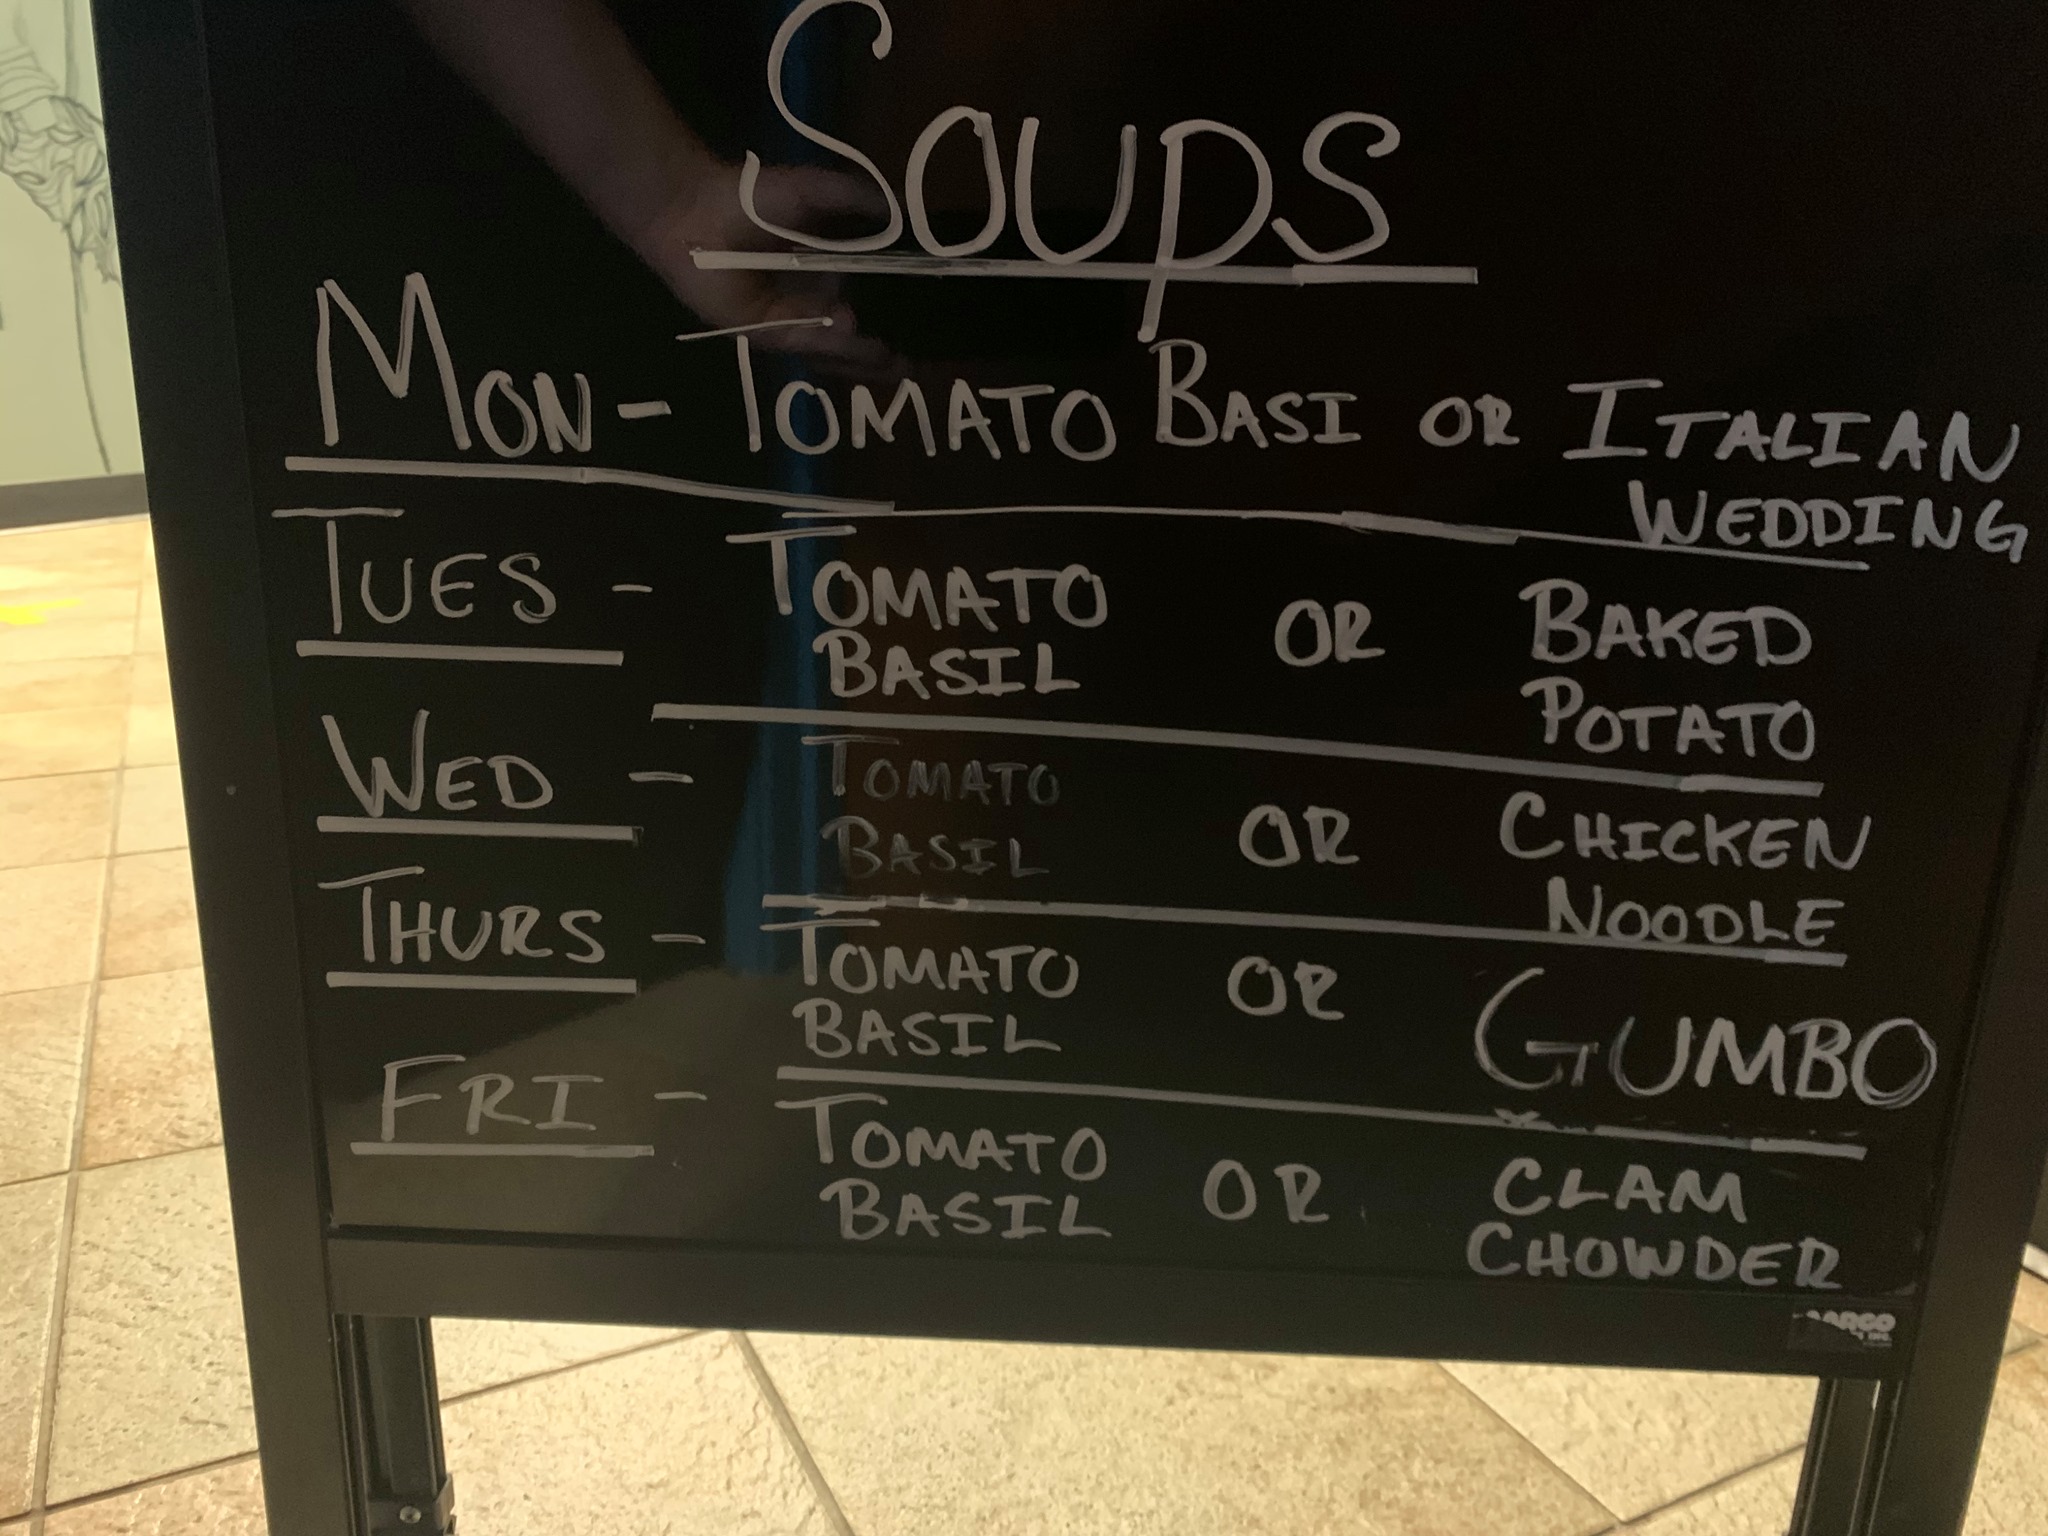 Soups
MON - TOMATO BASI OR ITALIAN
WEDDING
TUES - TOMATO
BASIL OR BAKED
POTATO
WED - TOMATO
BASIL OR CHICKEN
NOODLE
THURS - TOMATO
BASIL OR GUMBO
FRI - TOMATO
BASIL OR CLAM
CHOWDER